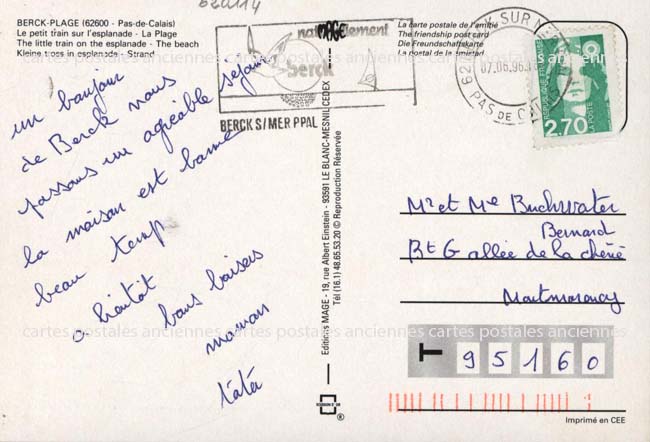 620114
BERCK-PLAGE (62600 - Pas-de-Calais)
Le petit train sur l'esplanade - La Plage
The little train on the esplanade - The beach
Kleine troos in esplanade - Strand
un bonjour
de Berck nous
passons un agréable séjour
la maison est bonne
beau temp
a bientôt
bons baisers
maman
tàtà
naturellement
Berck
BERCK S/MER PPAL
La carte postale de l'amitié
The friendship post card
Die Freundschaftskarte
La postal de la amistad
BERCK SUR MER
07.06.96
PAS DE CALAIS
REPUBLIQUE FRANÇAISE
LA POSTE
2,70
Editions MAGE - 19, rue Albert Einstein - 93591 LE BLANC-MESNIL CEDEX
Tél (16.1) 48.65.53.20 © Reproduction Réservée
MAGE
Mr et Me Buchwater
Bernard
Bt G allée de la
Montmorency
T 95160
®
Imprimé en CEE
cartes postales anciennes cartes postales anciennes cartes postales anciennes